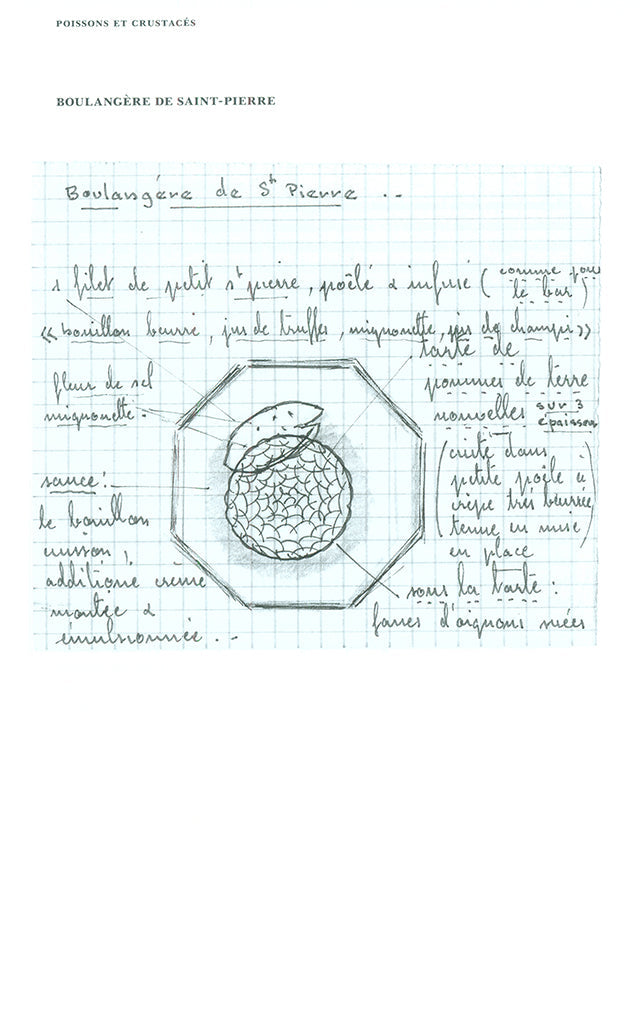 POISSONS ET CRUSTACÉS
BOULANGÈRE DE SAINT-PIERRE
Boulangère de St Pierre ..
1 filet de petit st pierre, poêlé & infusé (comme pour
le bar)
« bouillon beurré, jus de truffes, mignonette, jus de champi »
fleur de sel
mignonette.
tarte de
pommes de terre
nouvelles sur 3
épaisseurs
(cuite dans
petite poêle à
crêpe très beurrée
tenue en
en place
sauce :
le bouillon
cuisson,
additioné crème
montée &
émulsionnée ..
sous la tarte :
fanes d'oignons suées